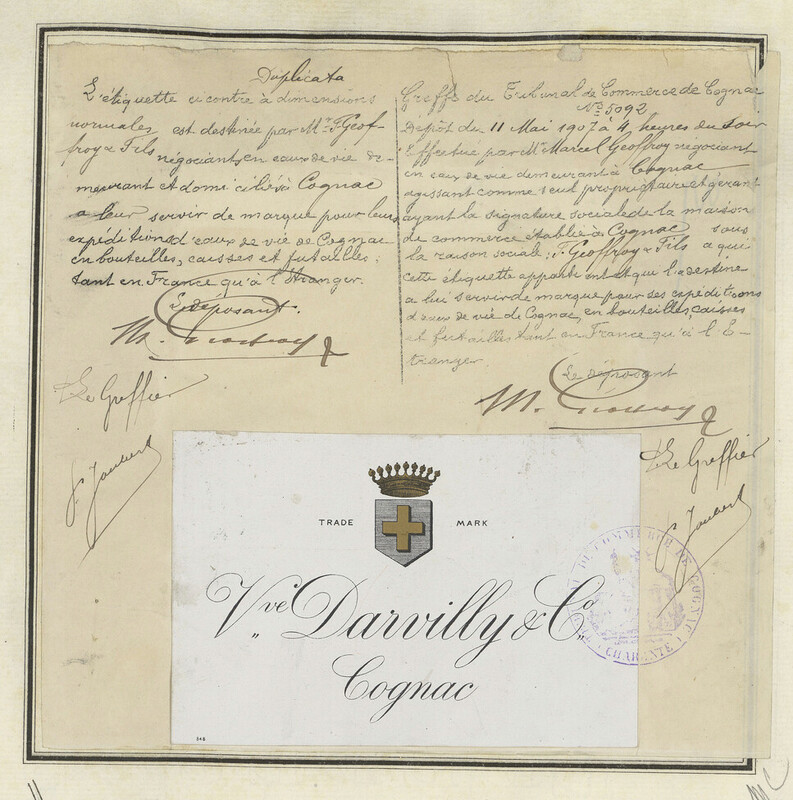 Duplicata
L'étiquette ci contre à dimensions
normales est destinée par Mr F Geof-
froy & Fils négociant en eaux de vie de-
meurant et domiciliés à Cognac
a leur servir de marque pour leurs
expéditions d'eaux de vie de Cognac
en bouteilles, caisses et futailles:
tant en France qu'à l'Etranger.
Le déposant.
M. Geoffroy
Le Greffier
Joubert
Greffe du Tribunal de Commerce de Cognac
No 5092
Dépôt du 11 Mai 1907 à 4 heures du soir
Effectué par Mr Marcel Geoffroy négociant
en eaux de vie demeurant à Cognac
agissant comme seul propriétaire et gérant
ayant la signature sociale de la maison
de commerce établie à Cognac sous
la raison sociale: F. Geoffroy & Fils a qui
cette étiquette appartient et qui la destine
a lui servir de marque pour ses expéditions
d'eaux de vie de Cognac, en bouteilles, caisses
et futailles tant en France qu'à l'E-
tranger.
Le déposant
M. Geoffroy
Le Greffier
Joubert
TRADE MARK
Vve Darvilly & Co
Cognac
DE COMMERCE DE COGNAC
CHARENTE